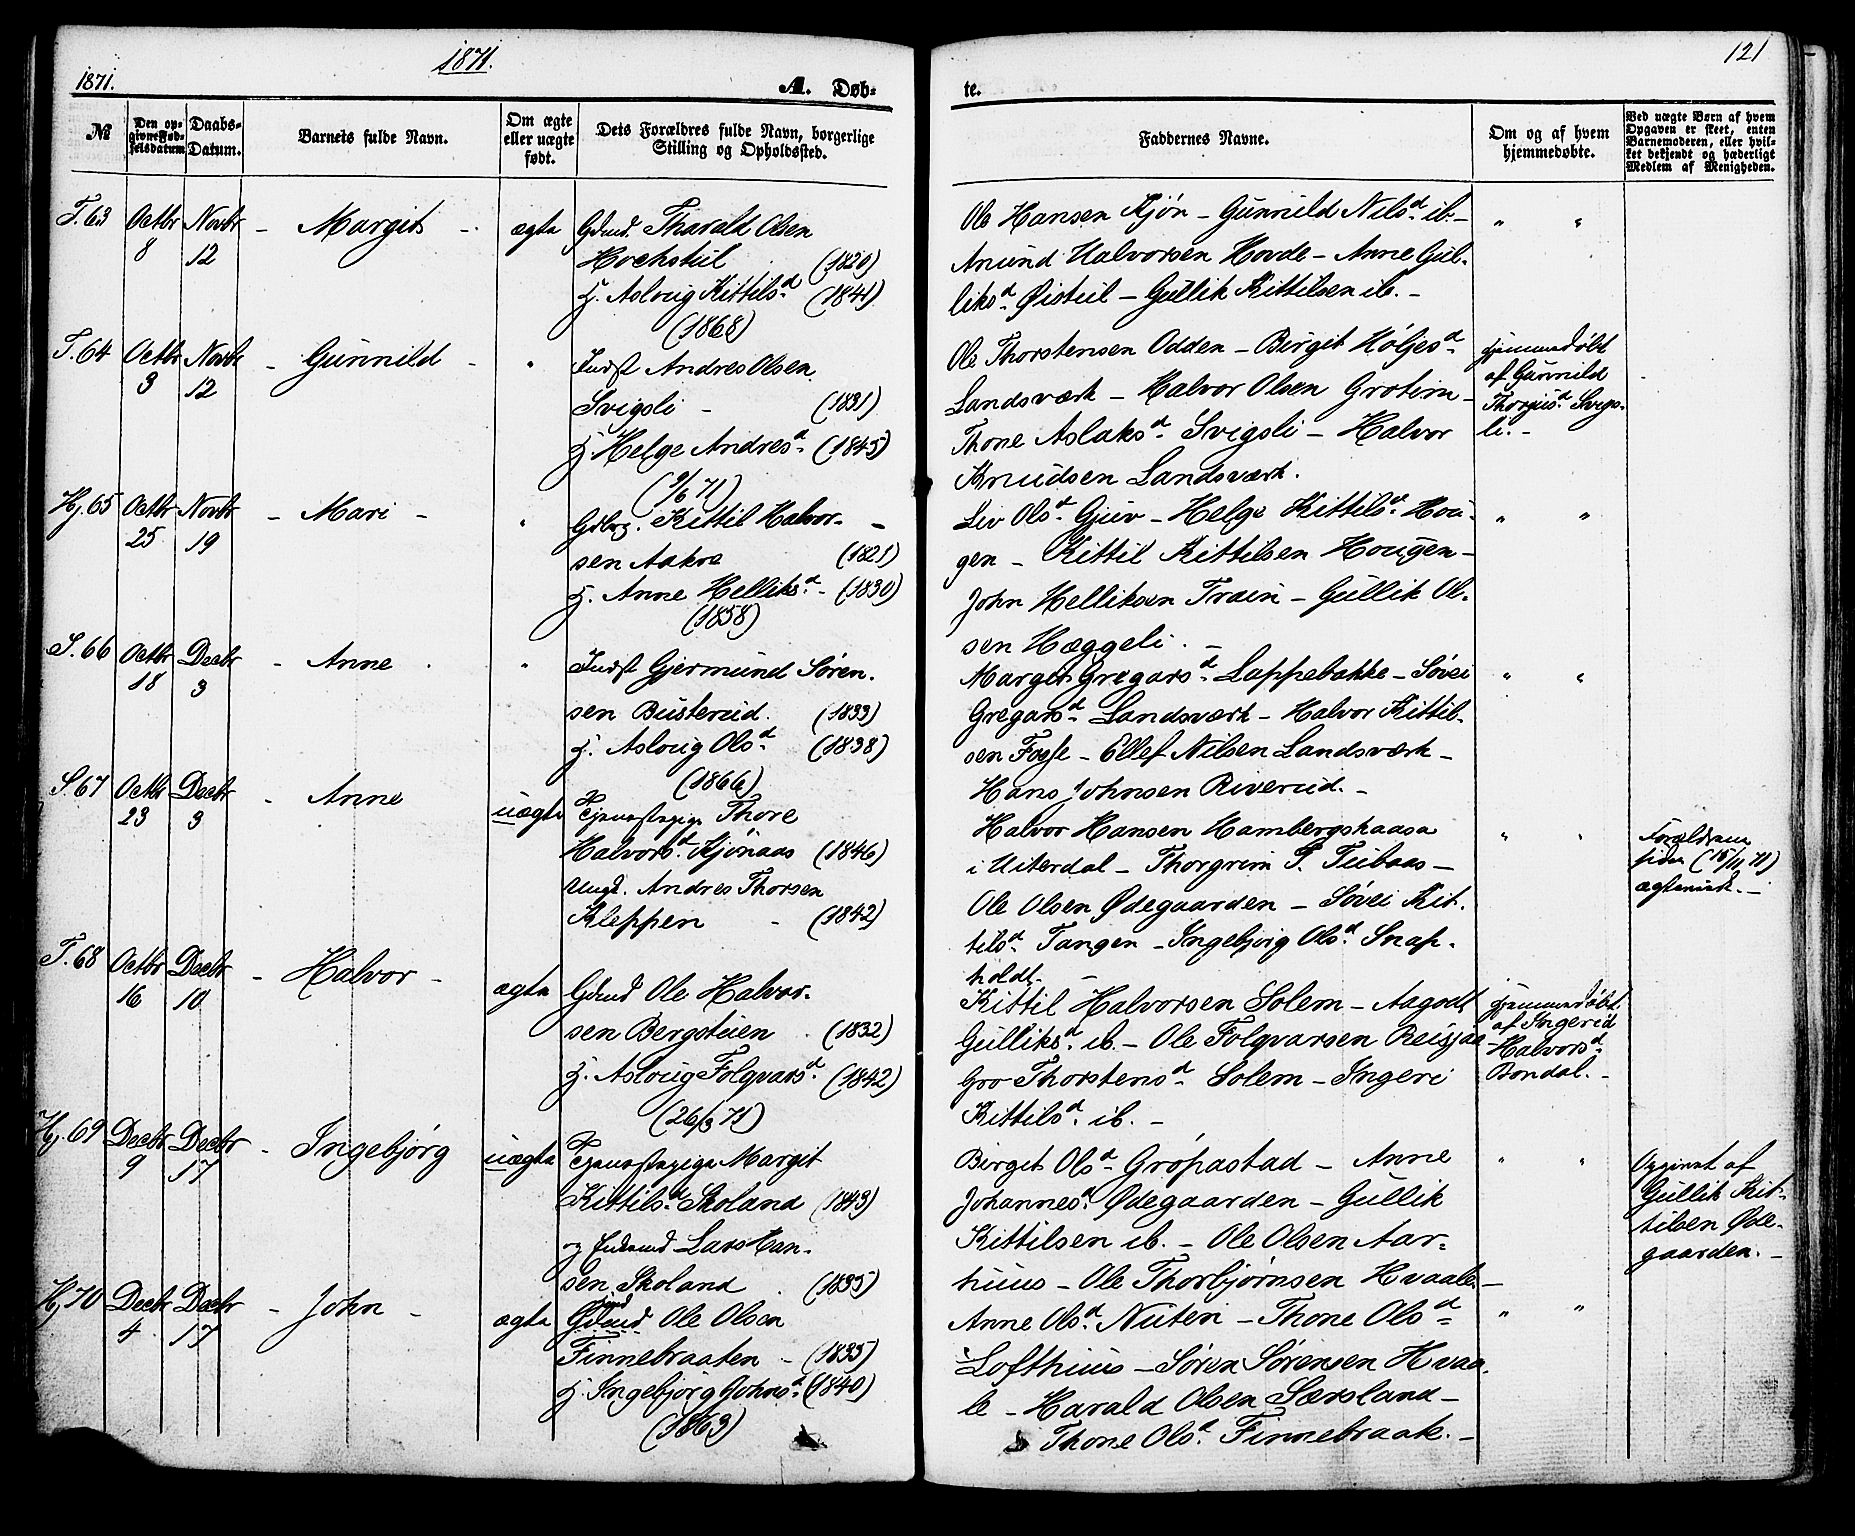 1871.
121
1871.
A. Døb-
te.
№
Den op-
givne Fød-
selsdatum
Daabs-
Datum.
Barnets fulde Navn.
Om ægte
eller uægte
født.
Dets Forældres fulde Navn, borgerlige
Stilling og Opholdssted.
Faddernes Navne.
Om og af hvem
hjemmedøbte.
Ved uægte Børn af hvem
Opgaven er skeet, enten
Barnemoderen, eller hvil-
ket bekjendt og hæderligt
Medlem af Menigheden.
T. 63 Octbr 8 Novbr 12 - Margit - ægte
Gdmd. Tharald Olsen
Hvekstul (1820)
H. Asloug Kittilsd (1841)
(1868)
Ole Hansen Kjøn - Gunnild Nilsd ib. -
Anund Halvorsen Hovde - Anne Gul-
liksd Øistul - Gullik Kittilsen ib. -
" "
T. 64 Octbr 3 Novbr 12 - Gunnild - "
Indst Andres Olsen
Svigsli - (1831)
H. Helge Andresd (1845)
(9/6 71)
Ole Thorstensen Odden - Birgit Høljesd
Landsværk - Halvor Olsen Grotim -
Thone Aslaksd Svigsli - Halvor
Knudsen Landsværk.
hjemmedøbt
af Gunnild
Thorjusd Svigs-
li. -
Hj. 65 Octbr 25 Novbr 19 - Mari - "
Gdbrg. Kittil Halvor-
sen Aakre (1821)
H. Anne Helliksd - (1830)
(1858)
Liv Olsd Gjuv - Helge Kittilsd Hou-
gen - Kittil Kittilsen Hougen -
John Helliksen Traen - Gullik Ol-
sen Hæggeli. -
" "
S. 66 Octbr 18 Decbr 3 - Anne "
Indst Gjermund Søren-
sen Busterud. (1833)
H. Asloug Olsd (1838)
(1866)
Margit Gregarsd Lappebakke - Søvei
Gregarsd Landsværk - Halvor Kittil-
sen Fosse - Ellef Nilsen Landsværk -
Hans Johnsen Riverud. -
" "
S. 67 Octbr 23 Decbr 3 - Anne uægte
Tjenestepige Thore
Halvorsd Kjønaas (1846)
Ungk. Andres Thorsen
Kleppen - (1842)
Halvor Hansen Hambergskaasa
i Uiterdal - Thorgrim T. Tubaas -
Ole Olsen Ødegaarden - Søvei Kit-
tilsd Tangen - Ingebjørg Olsd Snap-
holdt. -
" "
Forældrene
siden (15/11 71)
ægteviet. -
T. 68 Octbr 16 Decbr 10 - Halvor - ægte
Gdmd Ole Halvor-
sen Bergsteien (1832)
H. Asloug Folqvarsd (1842)
(26/3 71)
Kittil Halvorsen Solem - Aagodt
Gulliksd ib. - Ole Folqvarsen Reisjaa
Gro Thorstensd Solem - Ingeri
Kittilsd ib. -
hjemmedøbt
af Ingerid
Halvorsd
Bondal. -
Hj. 69 Decbr 9 Decbr 17 - Ingebjørg uægte
Tjenestepige Margit
Kittilsd Skoland (1843)
og Enkemd Lars Han-
sen Skoland (1835)
Birgit Olsd Grøpastad - Anne
Johannesd Ødegaarden - Gullik
Kittilsen ib. - Ole Olsen Aar-
huus - Ole Thorbjørnsen Hvaale -
" "
Opgivet af
Gullik Kit-
tilsen Øde-
gaarden. -
Hj 70 Decbr 4 Decbr 17 - John - ægte
Gdmd Ole Olsen
Finnebraaten - (1835)
H. Ingebjørg Johnsd (1840)
(1863)
Anne Olsd Nuten - Thone Olsd
Lofthuus - Søren Sørensen Hvaa-
le - Harald Olsen Særsland -
Thone Olsd Finnebraate. -
" "